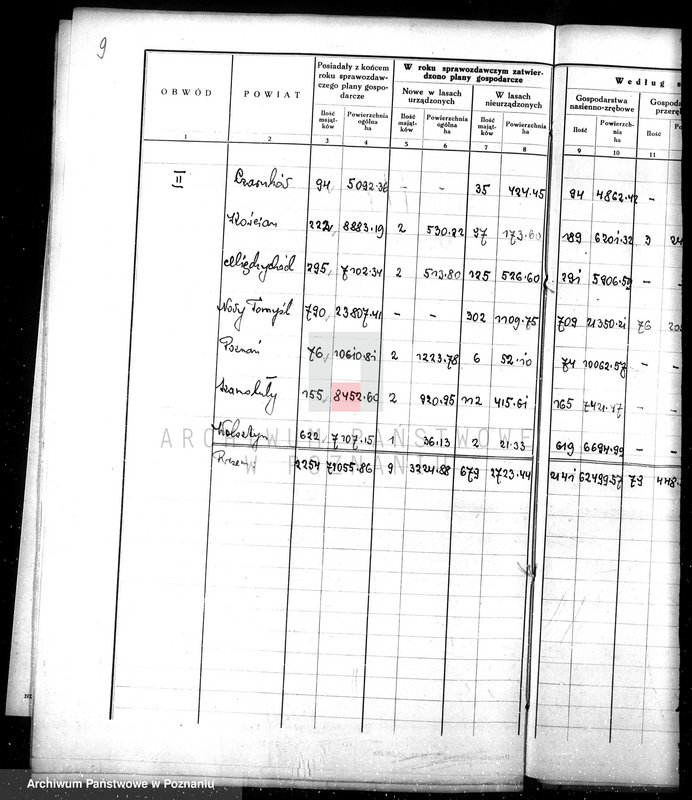 9
OBWÓD
POWIAT
Posiadały z końcem roku sprawozdawczego plany gospodarcze
W roku sprawozdawczym zatwierdzono plany gospodarcze
Nowe w lasach urządzonych
W lasach nieurządzonych
Według s
Gospodarstwa nasienno-zrębowe
Gospoda przerę
Ilość majątków
Powierzchnia ogólna ha
Ilość majątków
Powierzchnia ogólna ha
Ilość majątków
Powierzchnia ha
Ilość
Powierzchnia ha
Ilość
1 2 3 4 5 6 7 8 9 10 11
II Czarnków 94 5092.36 - - 35 424.45 94 4862.42 -
Kościan 222 8883.19 2 530.22 97 173.60 189 6201.32 3 24
Międzychód 295 7102.34 2 513.80 125 526.60 291 5906.59 -
Nowy Tomyśl 790 23807.41 - - 302 1109.75 709 21350.21 76 20
Poznań 76 10610.81 2 1223.78 6 52.10 74 10062.57 -
Szamotuły 155 8452.60 2 920.95 112 415.61 165 7421.17 -
Wolsztyn 622 7107.15 1 36.13 2 21.33 619 6694.99 -
Razem: 2254 71055.86 9 3224.88 679 2723.44 2141 62499.57 79 448
ARCHIWUM PAŃSTWOWE
W POZNANIU
Archiwum Państwowe w Poznaniu